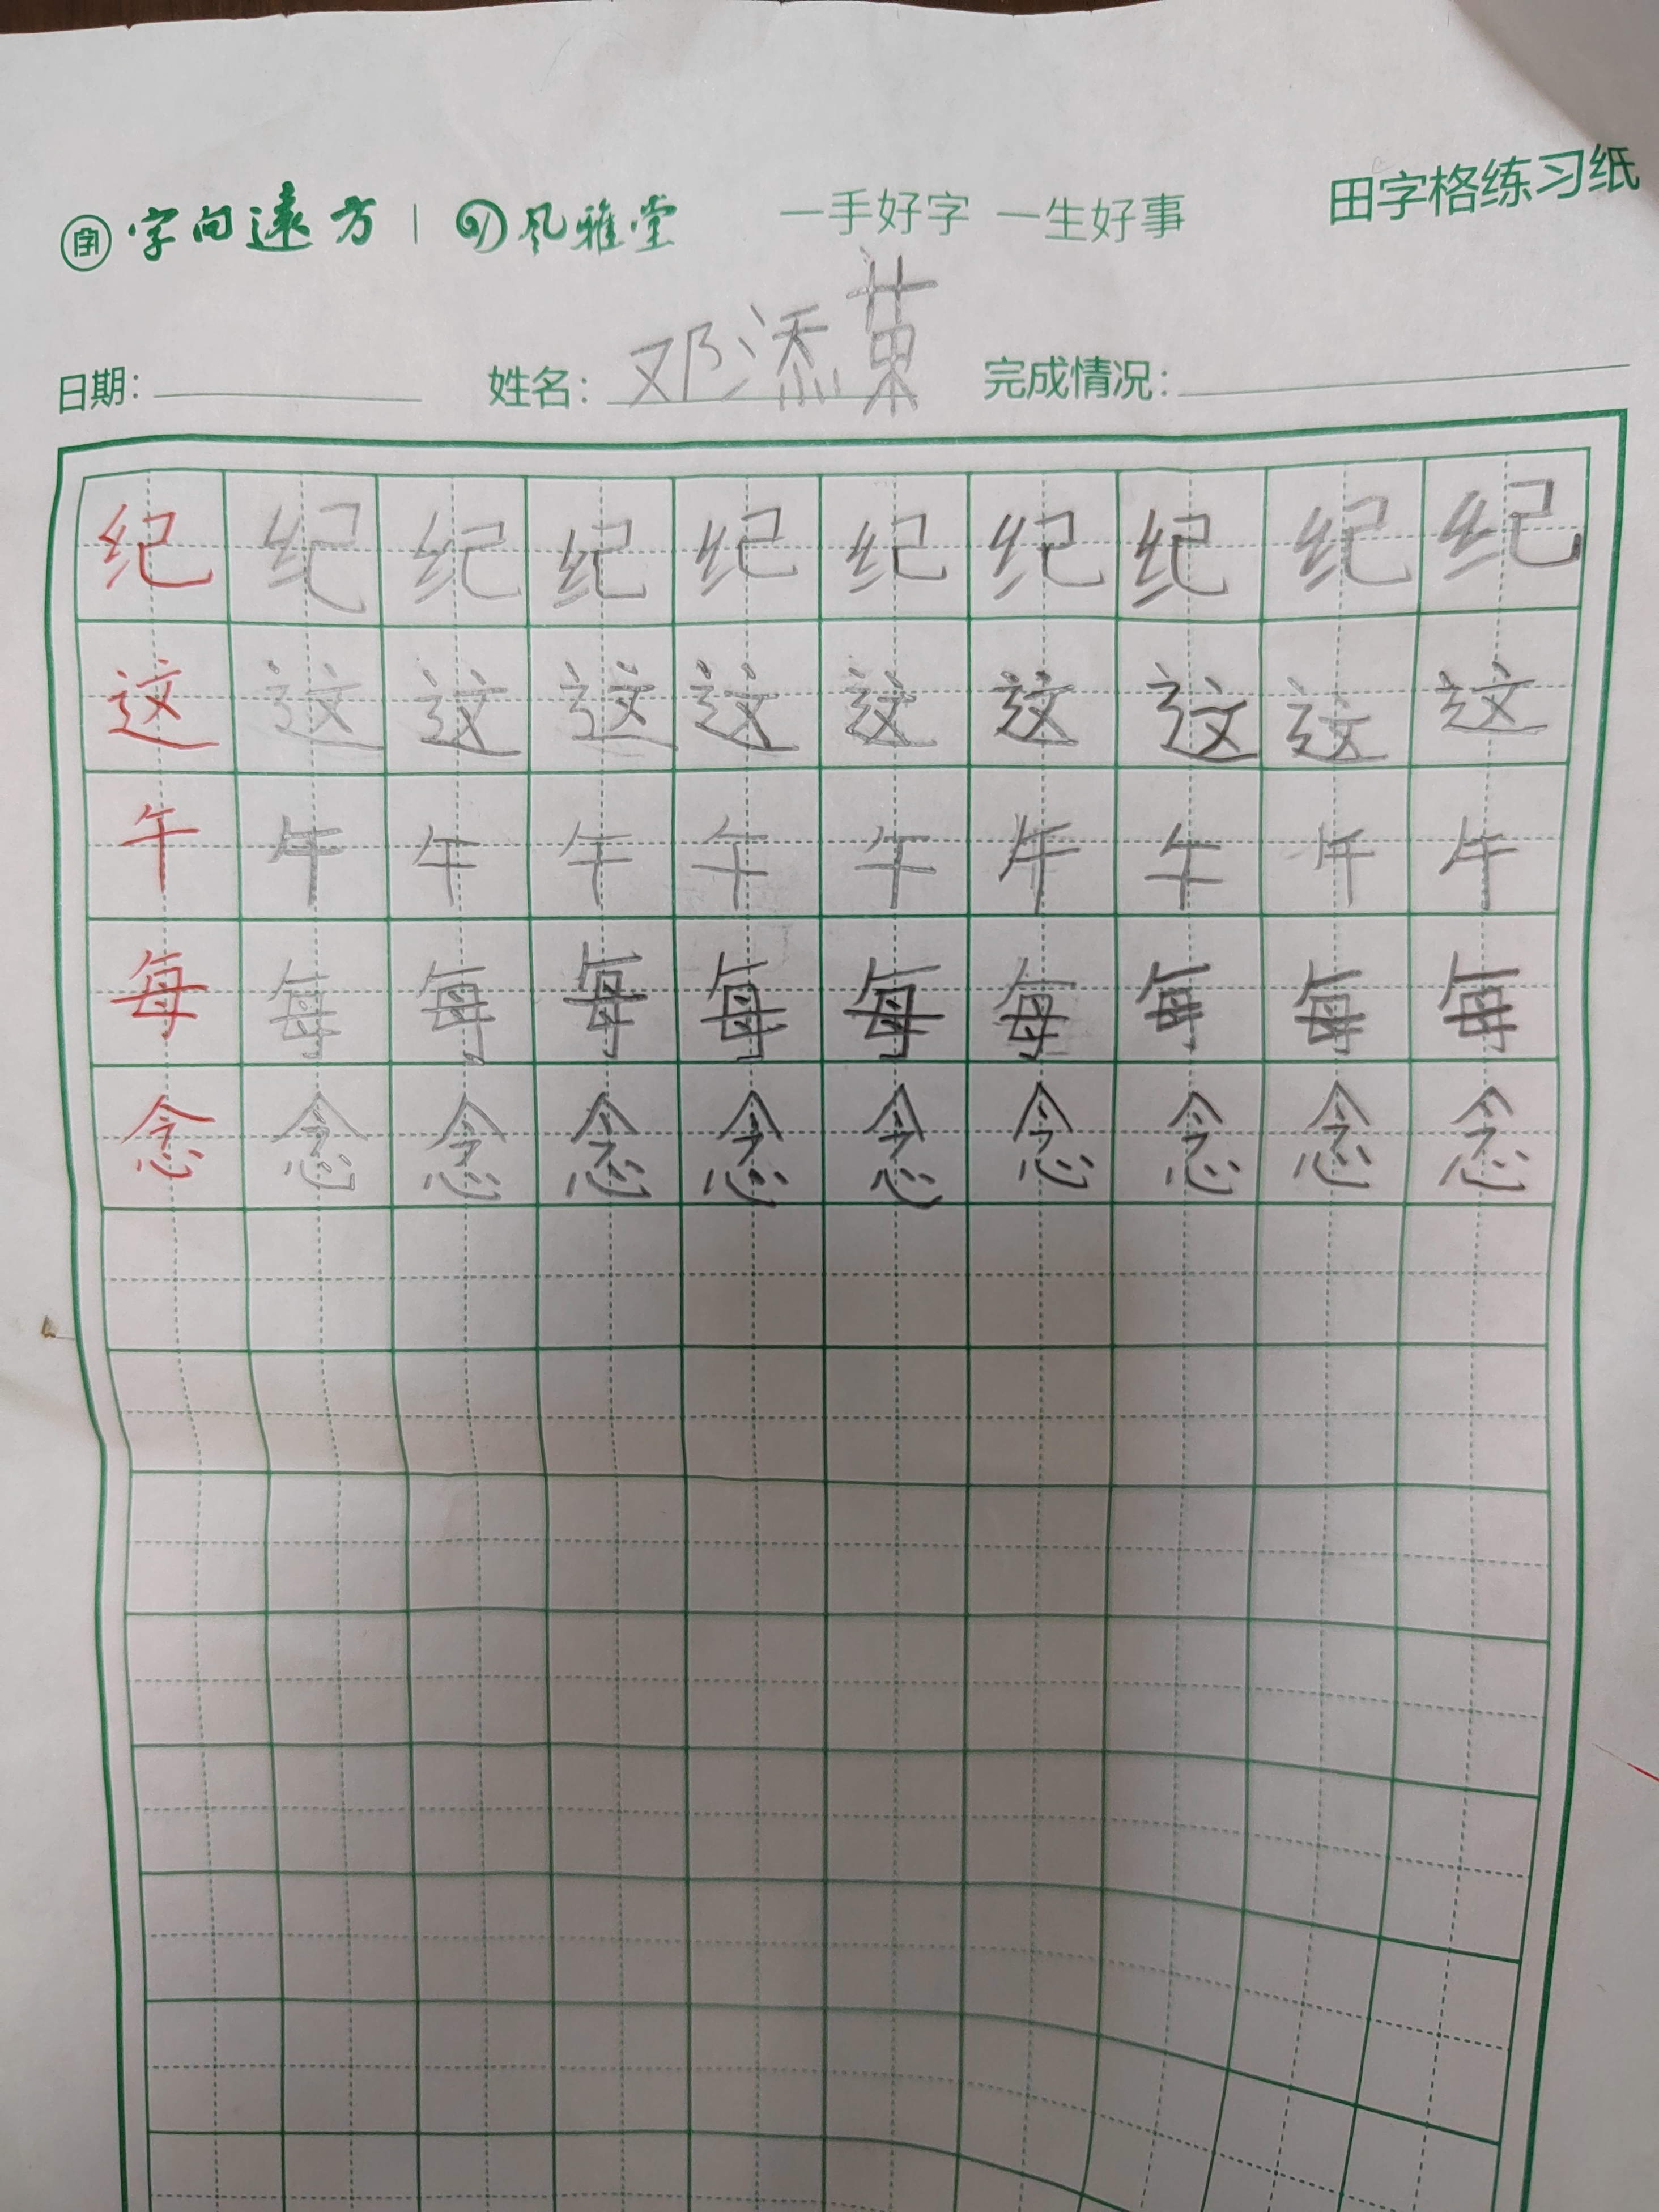 字 字向遠方 | 风雅堂 一手好字 一生好事 田字格练习纸
日期: 姓名: 邓添菓 完成情况:
纪 纪 纪 纪 纪 纪 纪 纪 纪 纪
这 这 这 这 这 这 这 这 这 这
午 午 午 午 午 午 午 午 午 午
每 每 每 每 每 每 每 每 每 每
念 念 念 念 念 念 念 念 念 念